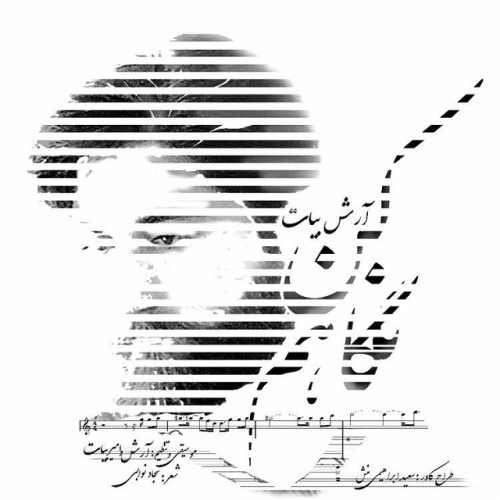 آرش بیات
موسیقی و تنظیم: آرش و امیر بیات
شعر: سجاد نوایی
طراح کاور: سعید ابراهیمی منش